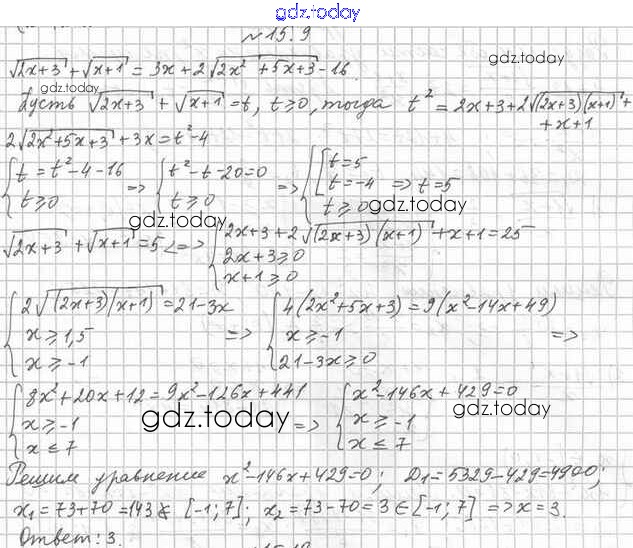 gdz.today
№ 15.9
√(2x+3) + √(x+1) = 3x + 2√(2x² + 5x + 3) - 16.
gdz.today
gdz.today
Пусть √(2x+3) + √(x+1) = t, t ≥ 0, тогда t² = 2x+3+2√((2x+3)(x+1)) +
+ x + 1
2√(2x²+5x+3) + 3x = t² - 4
{ t = t² - 4 - 16 => { t² - t - 20 = 0 => { [ t = 5
t ≥ 0 t ≥ 0 t = -4 => t = 5
t ≥ 0 gdz.today
gdz.today
√(2x+3) + √(x+1) = 5 <=> { 2x+3+2√((2x+3)(x+1)) + x+1 = 25
2x+3 ≥ 0
x+1 ≥ 0
{ 2√((2x+3)(x+1)) = 21-3x { 4(2x²+5x+3) = 9(x²-14x+49)
x ≥ 1,5 => x ≥ -1 =>
x ≥ -1 21-3x ≥ 0
{ 8x²+20x+12 = 9x²-126x+441 { x²-146x+429=0
x ≥ -1 gdz.today => x ≥ -1 gdz.today
x ≤ 7 x ≤ 7
Решим уравнение x²-146x+429=0; D₁=5329-429=4900;
x₁=73+70=143 ∉ [-1;7]; x₂=73-70=3 ∈ [-1;7] => x=3.
Ответ: 3.